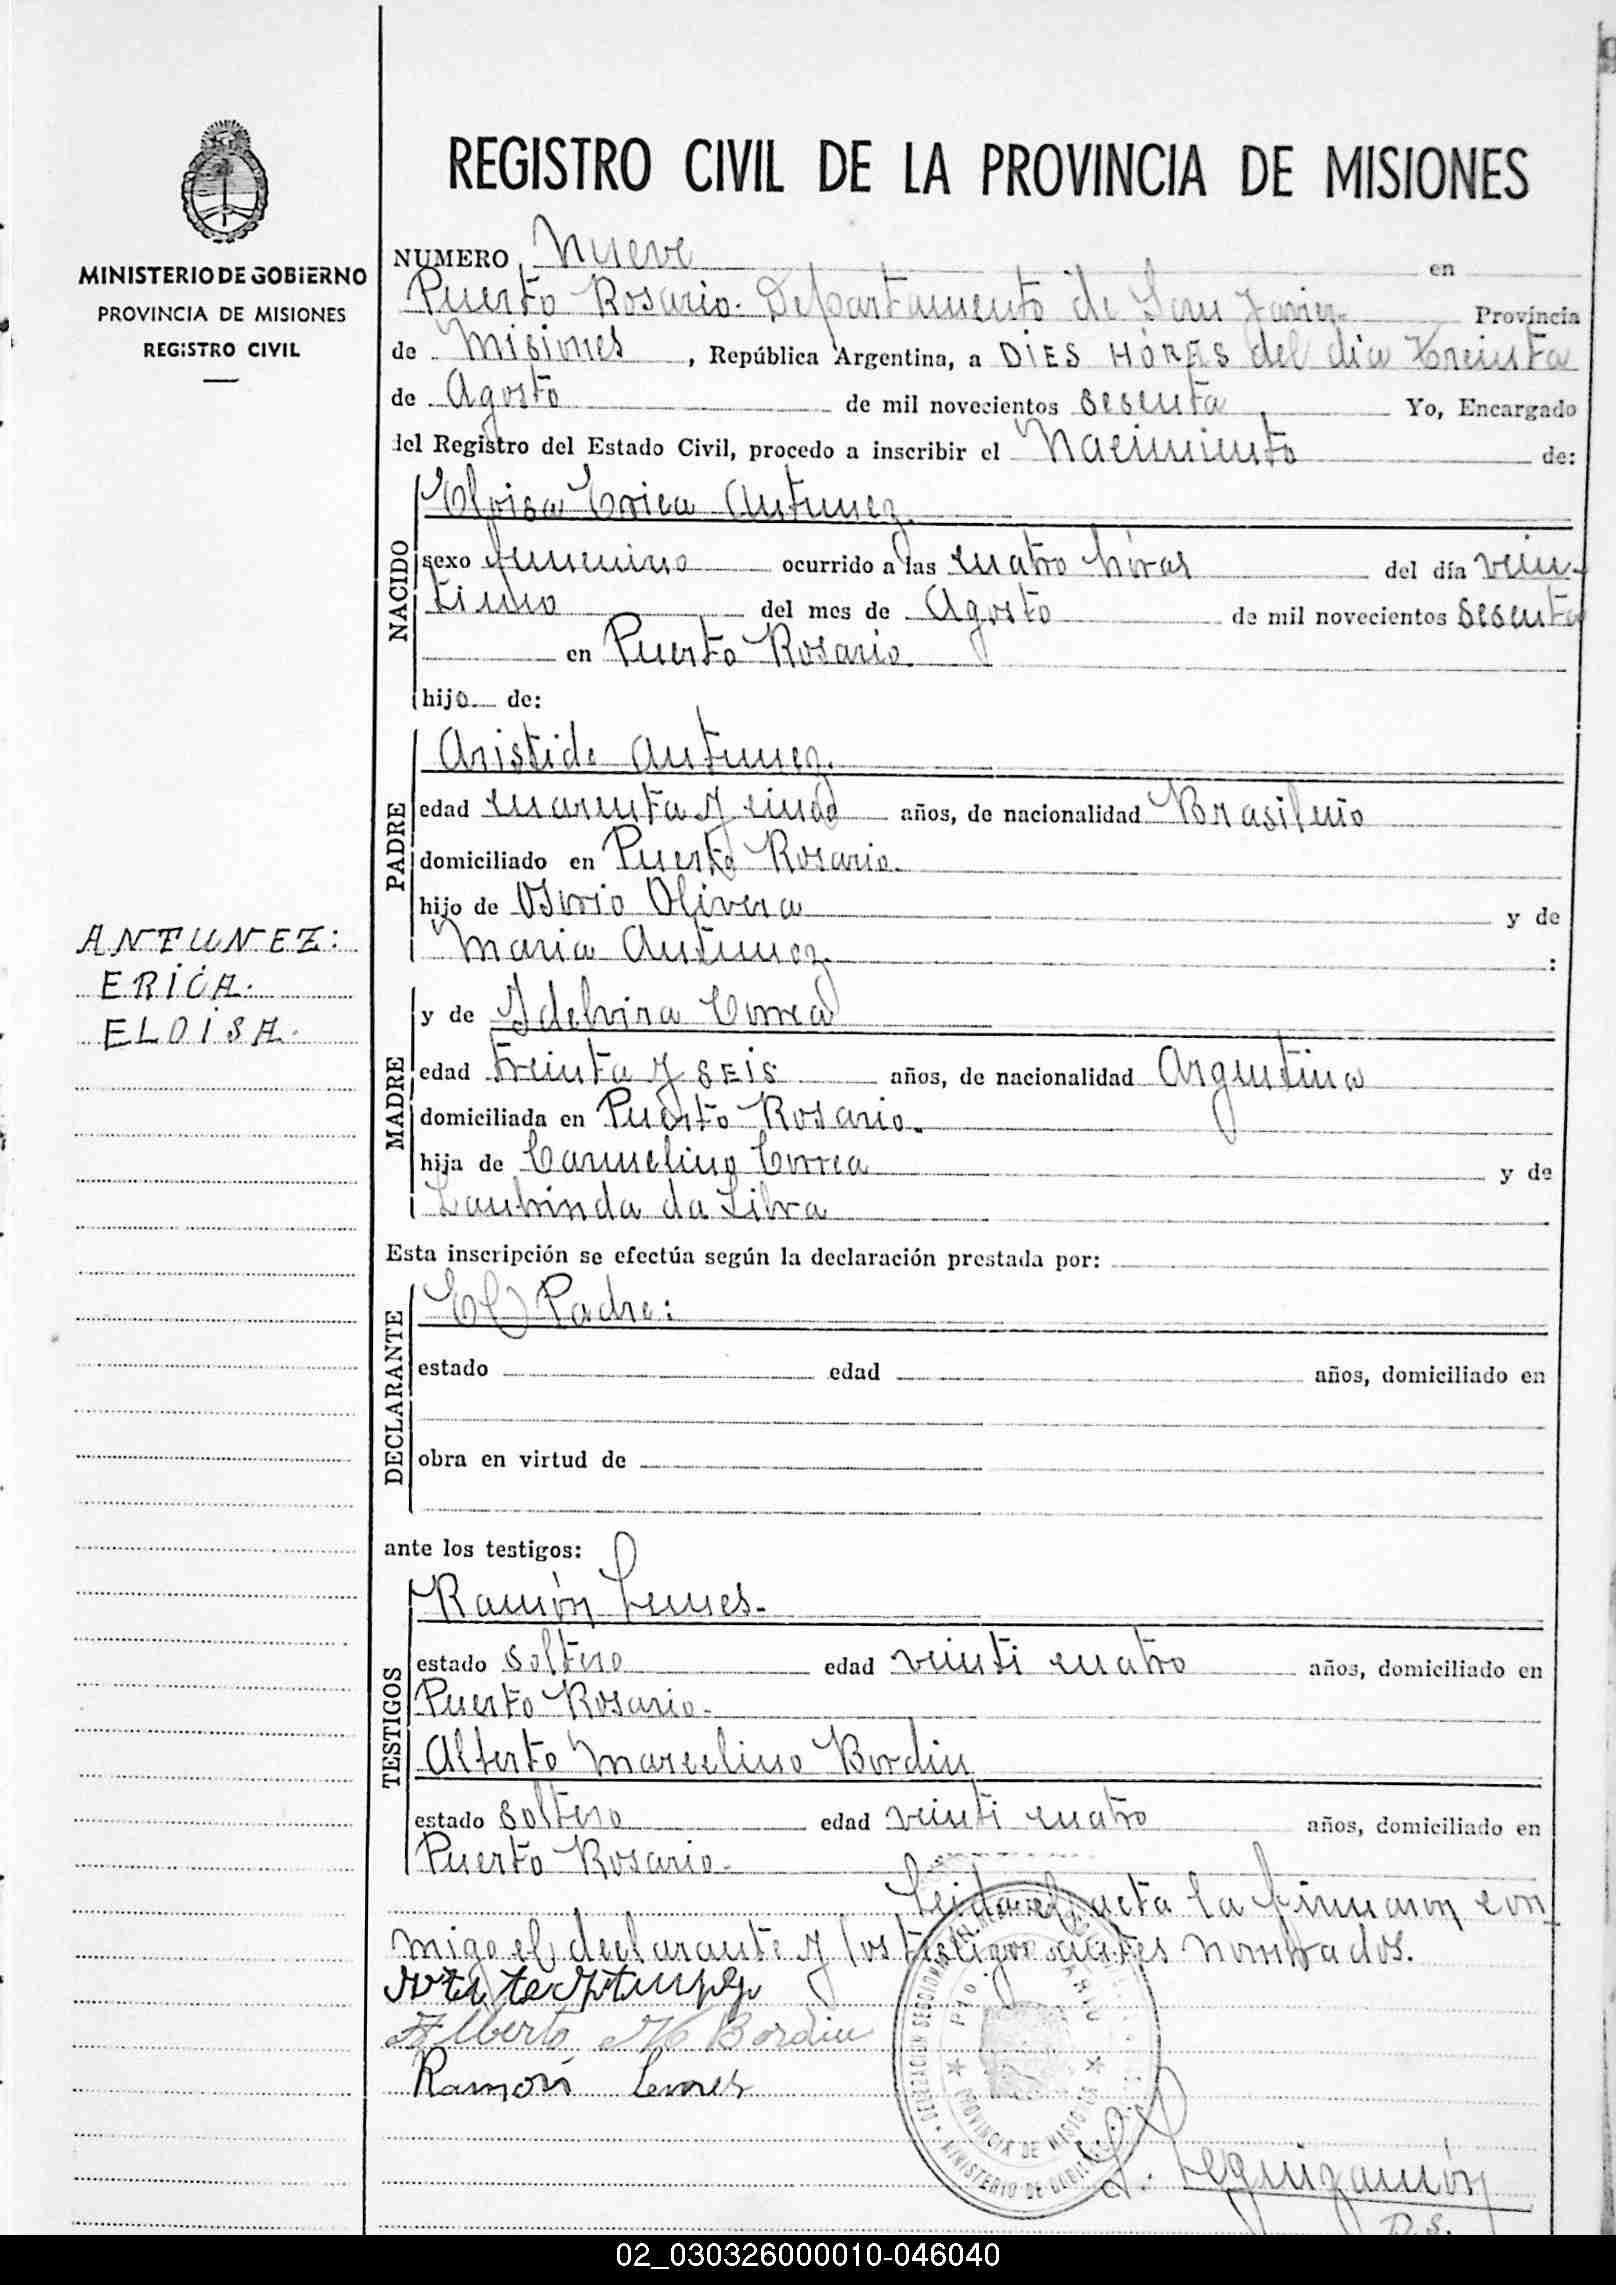 REGISTRO CIVIL DE LA PROVINCIA DE MISIONES
MINISTERIO DE GOBIERNO
PROVINCIA DE MISIONES
REGISTRO CIVIL
ANTUNEZ:
ERICA.
ELOISA.
NUMERO Nueve en
Puerto Rosario. Departamento de San Javier. Provincia
de Misiones, República Argentina, a DIES HORAS del dia treinta
de Agosto de mil novecientos sesenta Yo, Encargado
del Registro del Estado Civil, procedo a inscribir el Nacimiento de:
NACIDO
Eloisa Erica Antunez.
sexo femenino ocurrido a las cuatro horas del día vein-
tiuno del mes de Agosto de mil novecientos sesenta
en Puerto Rosario.
hijo de:
PADRE
Aristide Antunez.
edad cuarenta y cinco años, de nacionalidad Brasileño
domiciliado en Puerto Rosario.
hijo de Osorio Olivera y de
Maria Antunez. :
MADRE
y de Idelvira Correa
edad treinta y SEIS años, de nacionalidad Argentina
domiciliada en Puerto Rosario.
hija de Carmelino Correa y de
da Silva
Esta inscripción se efectúa según la declaración prestada por:
DECLARANTE
El Padre:
estado edad años, domiciliado en
obra en virtud de
ante los testigos:
TESTIGOS
Ramón Lemes.
estado soltero edad veinti cuatro años, domiciliado en
Puerto Rosario.
Alberto Marcelino Bordin
estado soltero edad veinti cuatro años, domiciliado en
Puerto Rosario.
Leida el acta la firmaron con
migo el declarante y los testigos antes nombrados.
Alberto M Bordin
Ramón Lemes
PROVINCIA DE MISIONES
MINISTERIO DE GOBIERNO
L. Leguizamón
D.S.
02_030326000010-046040